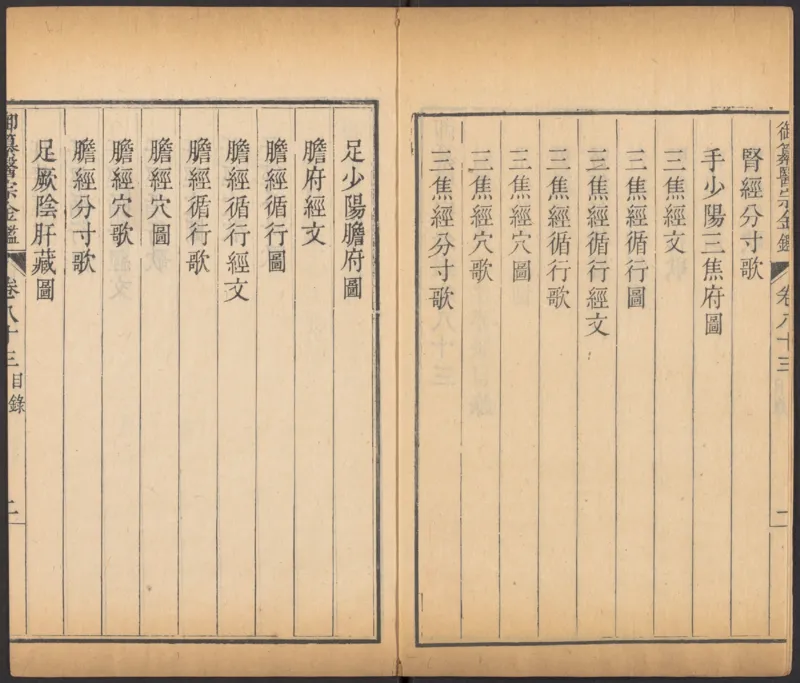 御纂醫宗金鑑 卷八十三 一
腎經分寸歌
手少陽三焦府圖
三焦經文
三焦經循行圖
三焦經循行經文
三焦經循行歌
三焦經穴圖
三焦經穴歌
三焦經分寸歌
足少陽膽府圖
膽府經文
膽經循行圖
膽經循行經文
膽經循行歌
膽經穴圖
膽經穴歌
膽經分寸歌
足厥陰肝藏圖
御纂醫宗金鑑 卷八十三 目錄 二